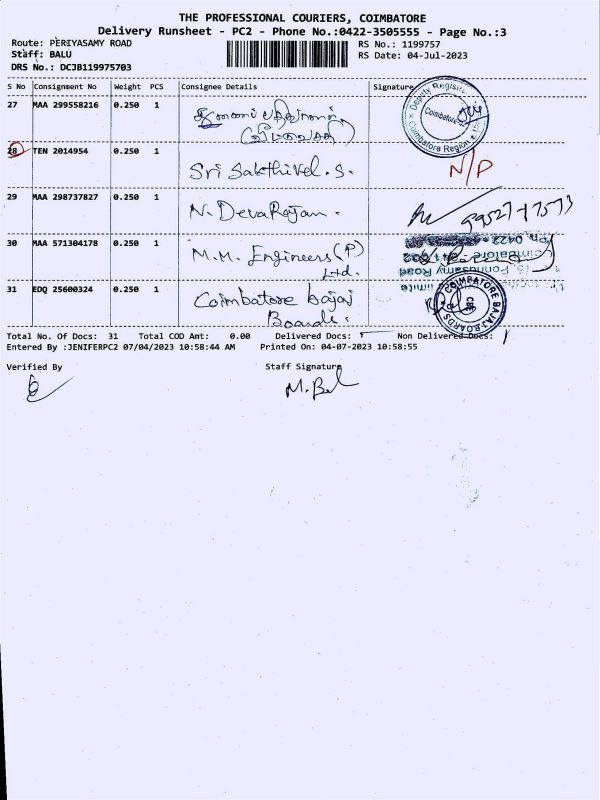 THE PROFESSIONAL COURIERS, COIMBATORE
Delivery Runsheet - PC2 - Phone No.:0422-3505555 - Page No.:3
Route: PERIYASAMY ROAD RS No.: 1199757
Staff: BALU RS Date: 04-Jul-2023
DRS No.: DCJB119975703
S No Consignment No Weight PCS Consignee Details Signature
27 MAA 299558216 0.250 1
Deputy Registrar
Coimbatore
Coimbatore Region
28 TEN 2014954 0.250 1 Sri Sakthivel. S. N/P
29 MAA 298737827 0.250 1 N. DevaRajan.
30 MAA 571304178 0.250 1 M.M. Engineers (P)
Ltd.
Ponnusamy Road
Coimbatore
Ph: 0422
31 EDQ 25600324 0.250 1 Coimbatore bajaj
Boards.
COIMBATORE BAJAJ BOARDS
CBE
Total No. Of Docs: 31 Total COD Amt: 0.00 Delivered Docs: Non Delivered Docs: 1
Entered By :JENIFERPC2 07/04/2023 10:58:44 AM Printed On: 04-07-2023 10:58:55
Verified By Staff Signature